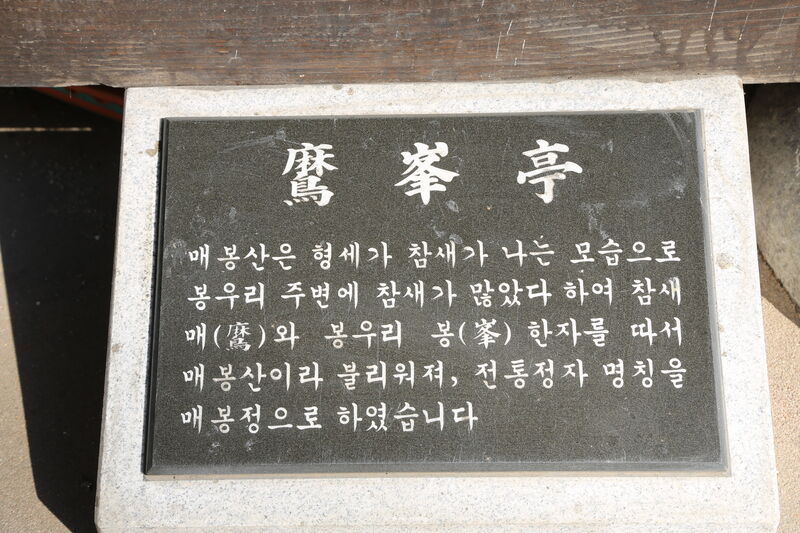 峯亭
매봉산은 형세가 참새가 나는 모습으로
봉우리 주변에 참새가 많았다 하여 참새
매( )와 봉우리 봉(峯) 한자를 따서
매봉산이라 불리워져, 전통정자 명칭을
매봉정으로 하였습니다